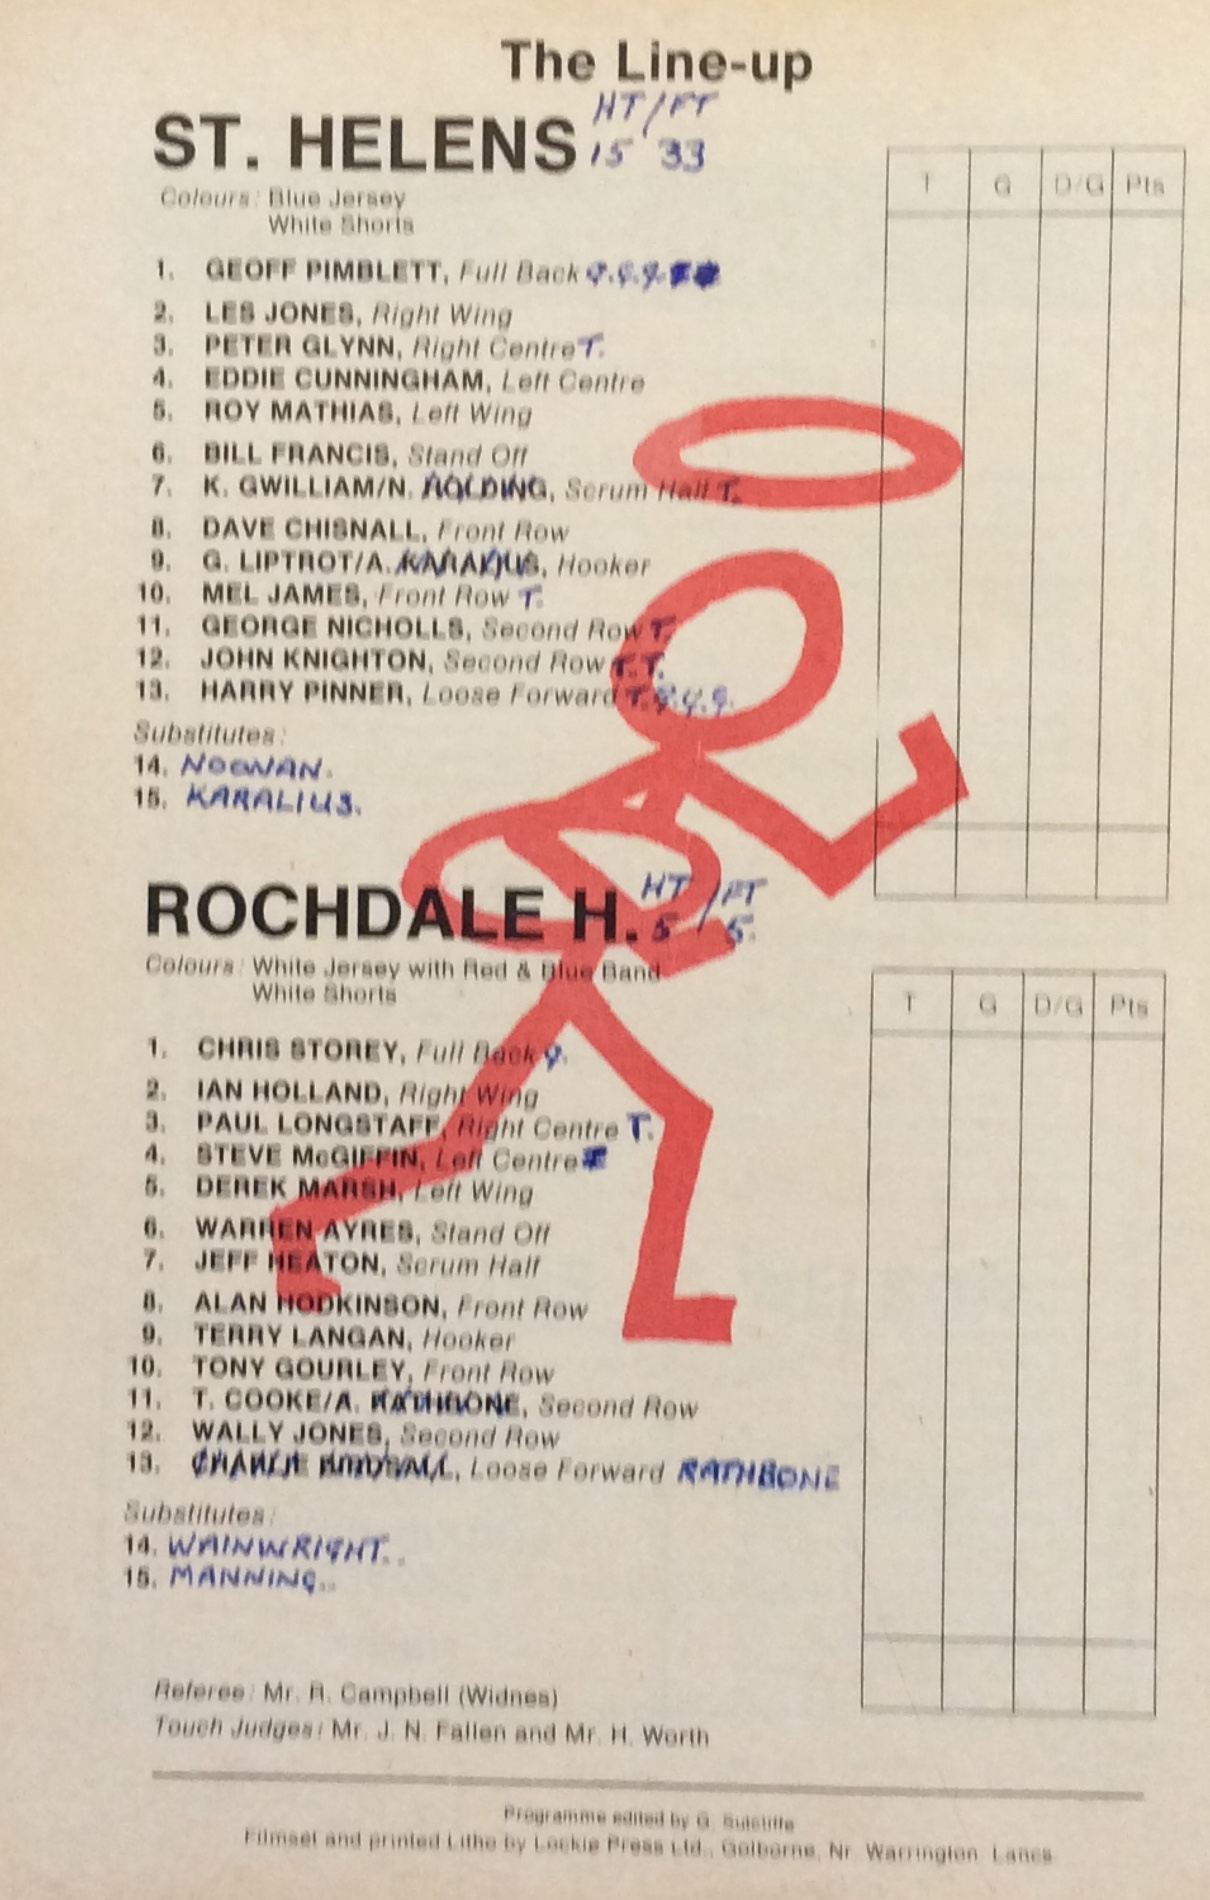 The Line-up
HT/FT
ST. HELENS 15 33
Colours: Blue Jersey
White Shorts
1. GEOFF PIMBLETT, Full Back g.g.g.
2. LES JONES, Right Wing
3. PETER GLYNN, Right Centre T.
4. EDDIE CUNNINGHAM, Left Centre
5. ROY MATHIAS, Left Wing
6. BILL FRANCIS, Stand Off
7. K. GWILLIAM/N. HOLDING, Scrum Half T.
8. DAVE CHISNALL, Front Row
9. G. LIPTROT/A. KARALIUS, Hooker
10. MEL JAMES, Front Row T.
11. GEORGE NICHOLLS, Second Row T.
12. JOHN KNIGHTON, Second Row T.T.
13. HARRY PINNER, Loose Forward T.g.g.g.
Substitutes:
14. NOONAN.
15. KARALIUS.
T G D/G Pts
HT/FT
ROCHDALE H. 5 5.
Colours: White Jersey with Red & Blue Band
White Shorts
1. CHRIS STOREY, Full Back g.
2. IAN HOLLAND, Right Wing
3. PAUL LONGSTAFF, Right Centre T.
4. STEVE McGIFFIN, Left Centre
5. DEREK MARSH, Left Wing
6. WARREN AYRES, Stand Off
7. JEFF HEATON, Scrum Half
8. ALAN HODKINSON, Front Row
9. TERRY LANGAN, Hooker
10. TONY GOURLEY, Front Row
11. T. COOKE/A. RATHBONE, Second Row
12. WALLY JONES, Second Row
13. CHARLIE BIRDSALL, Loose Forward RATHBONE
Substitutes:
14. WAINWRIGHT..
15. MANNING..
T G D/G Pts
Referee: Mr. R. Campbell (Widnes)
Touch Judges: Mr. J. N. Fallen and Mr. H. Worth
Programme edited by G. Sutcliffe
Filmset and printed Litho by Lockie Press Ltd., Golborne, Nr. Warrington, Lancs